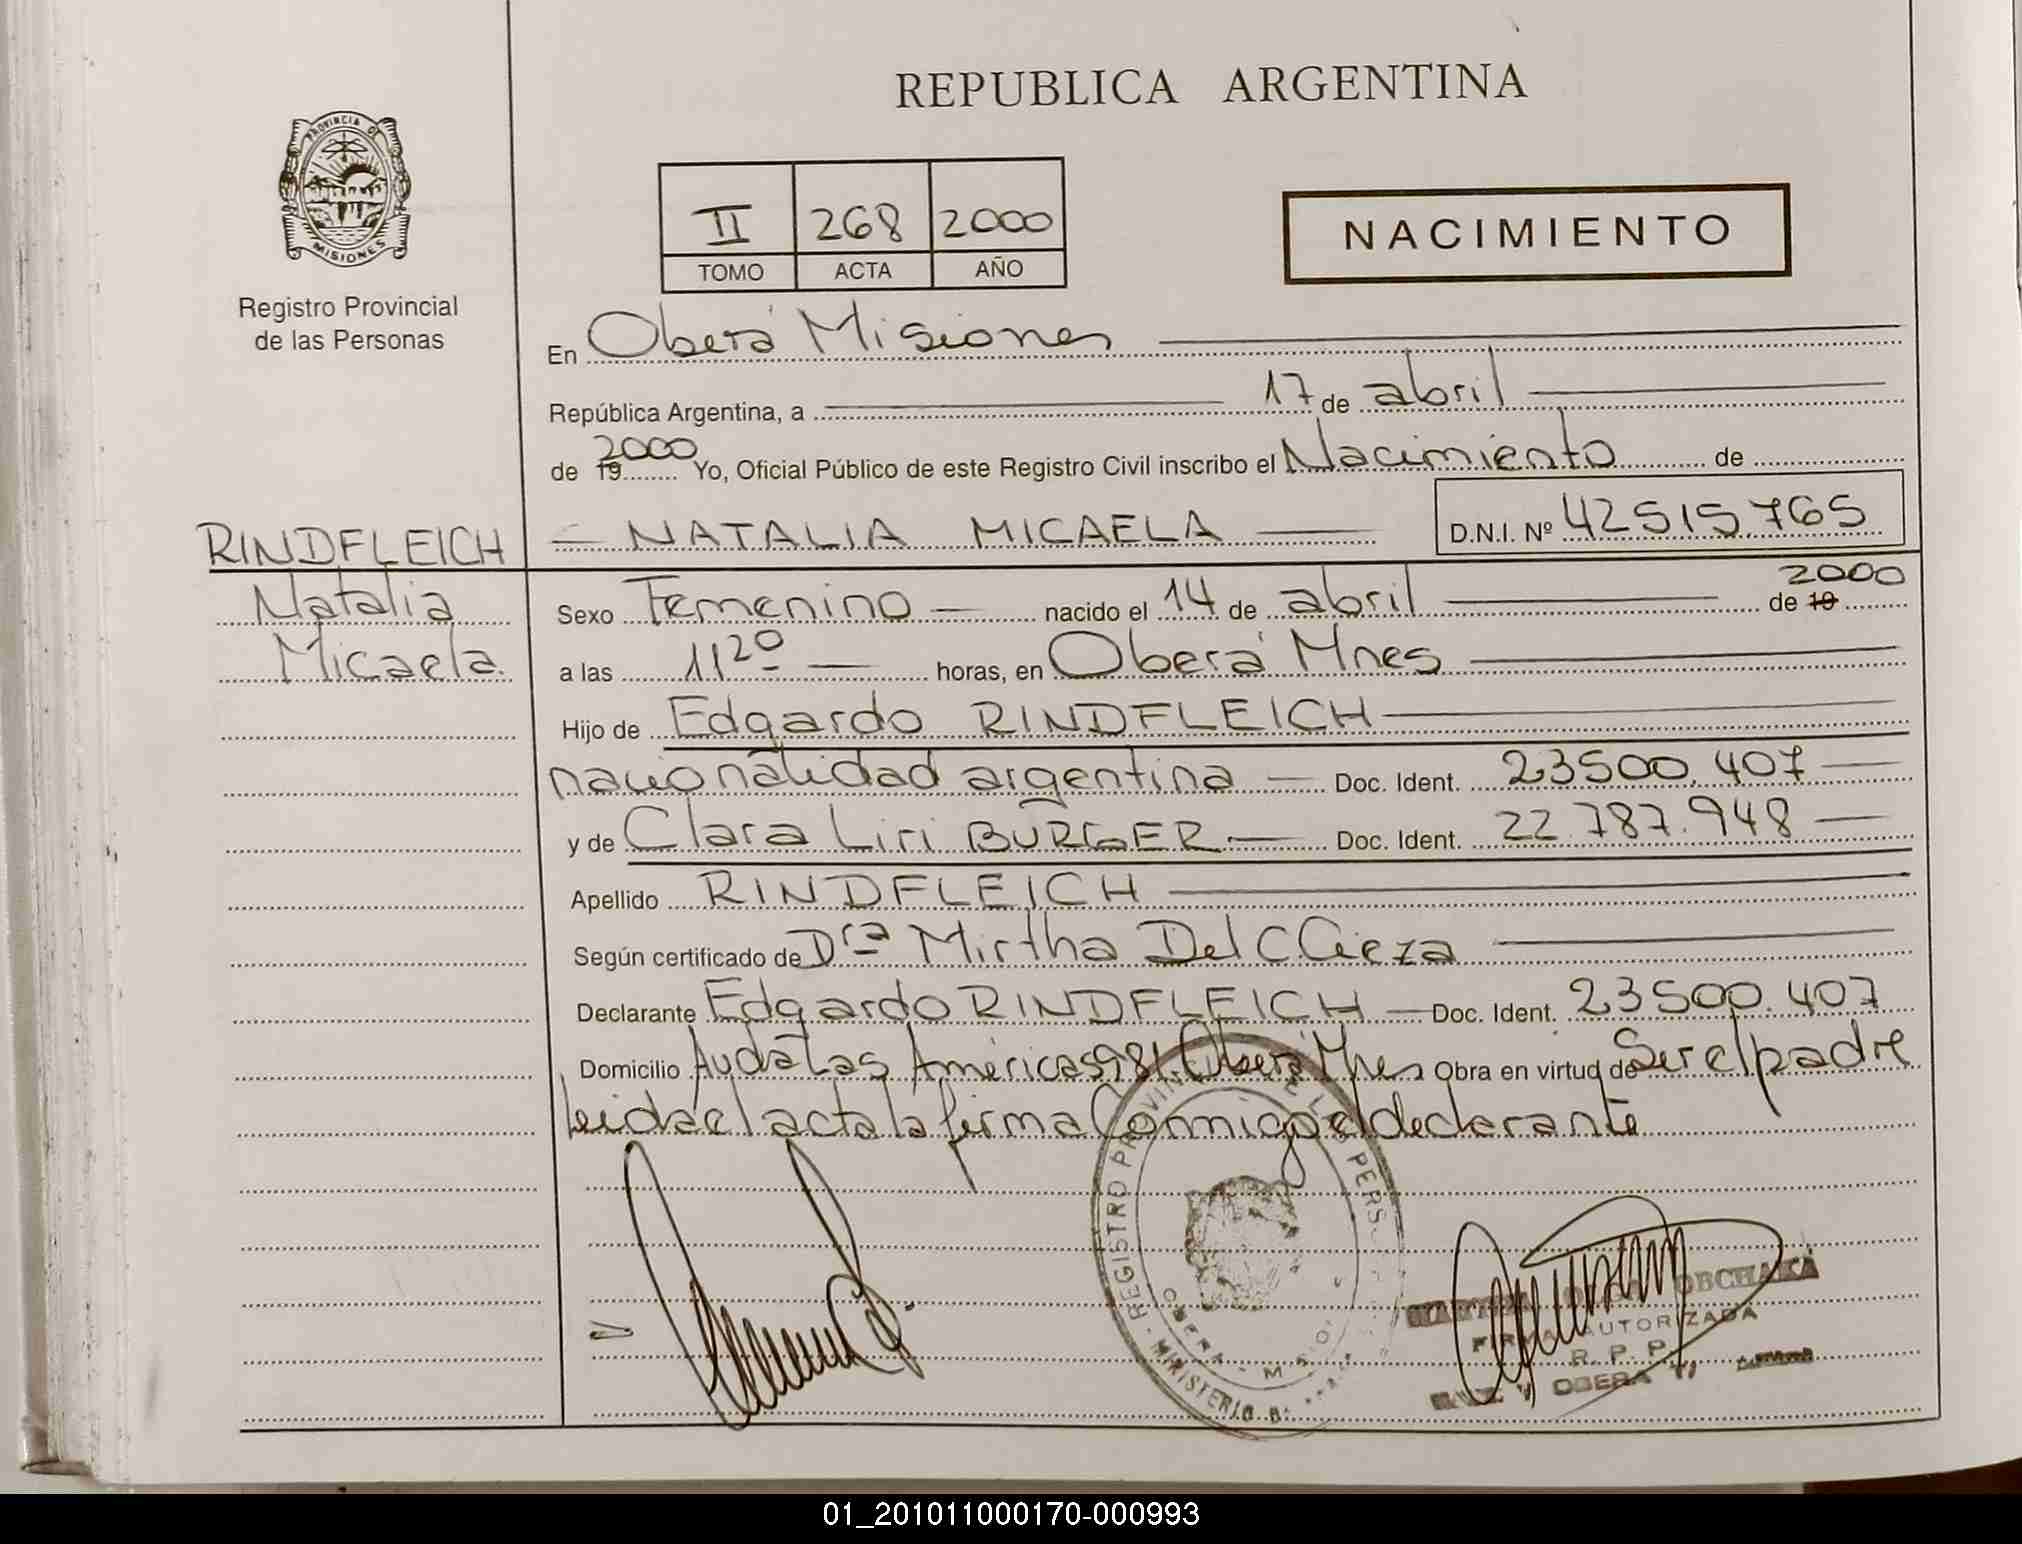 REPUBLICA ARGENTINA
PROVINCIA DE
MISIONES
Registro Provincial
de las Personas
II 268 2000
TOMO ACTA AÑO
NACIMIENTO
En Oberá Misiones
República Argentina, a 17 de abril
de 19 2000 Yo, Oficial Público de este Registro Civil inscribo el Nacimiento de
RINDFLEICH
Natalia
Micaela
NATALIA MICAELA D.N.I. Nº 42515.765
Sexo Femenino nacido el 14 de abril de 19 2000
a las 11 20 horas, en Oberá Mnes
Hijo de Edgardo RINDFLEICH
nacionalidad argentina Doc. Ident. 23500.407
y de Clara Liri BURGER Doc. Ident. 22.787.948
Apellido RINDFLEICH
Según certificado de Dra Mirtha Del C
Declarante Edgardo RINDFLEICH Doc. Ident. 23500.407
Domicilio Avda Las Américas 981. Oberá Mnes Obra en virtud de Ser el padre
leida el acta la firma Conmigo el declarante
REGISTRO PERS
MINISTERIO
OBCHAKA
FIRMA AUTORIZADA
R. P. P.
OBERA
01_201011000170-000993